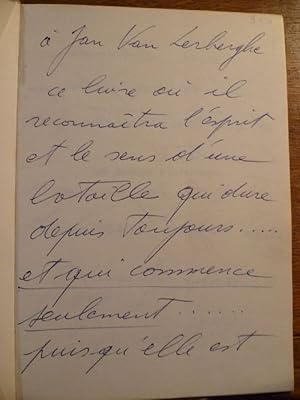 à Jan Van Lerberghe
ce livre où il
reconnaîtra l'esprit
et le sens d'une
bataille qui dure
depuis toujours.....
et qui commence
seulement......
puisqu'elle est